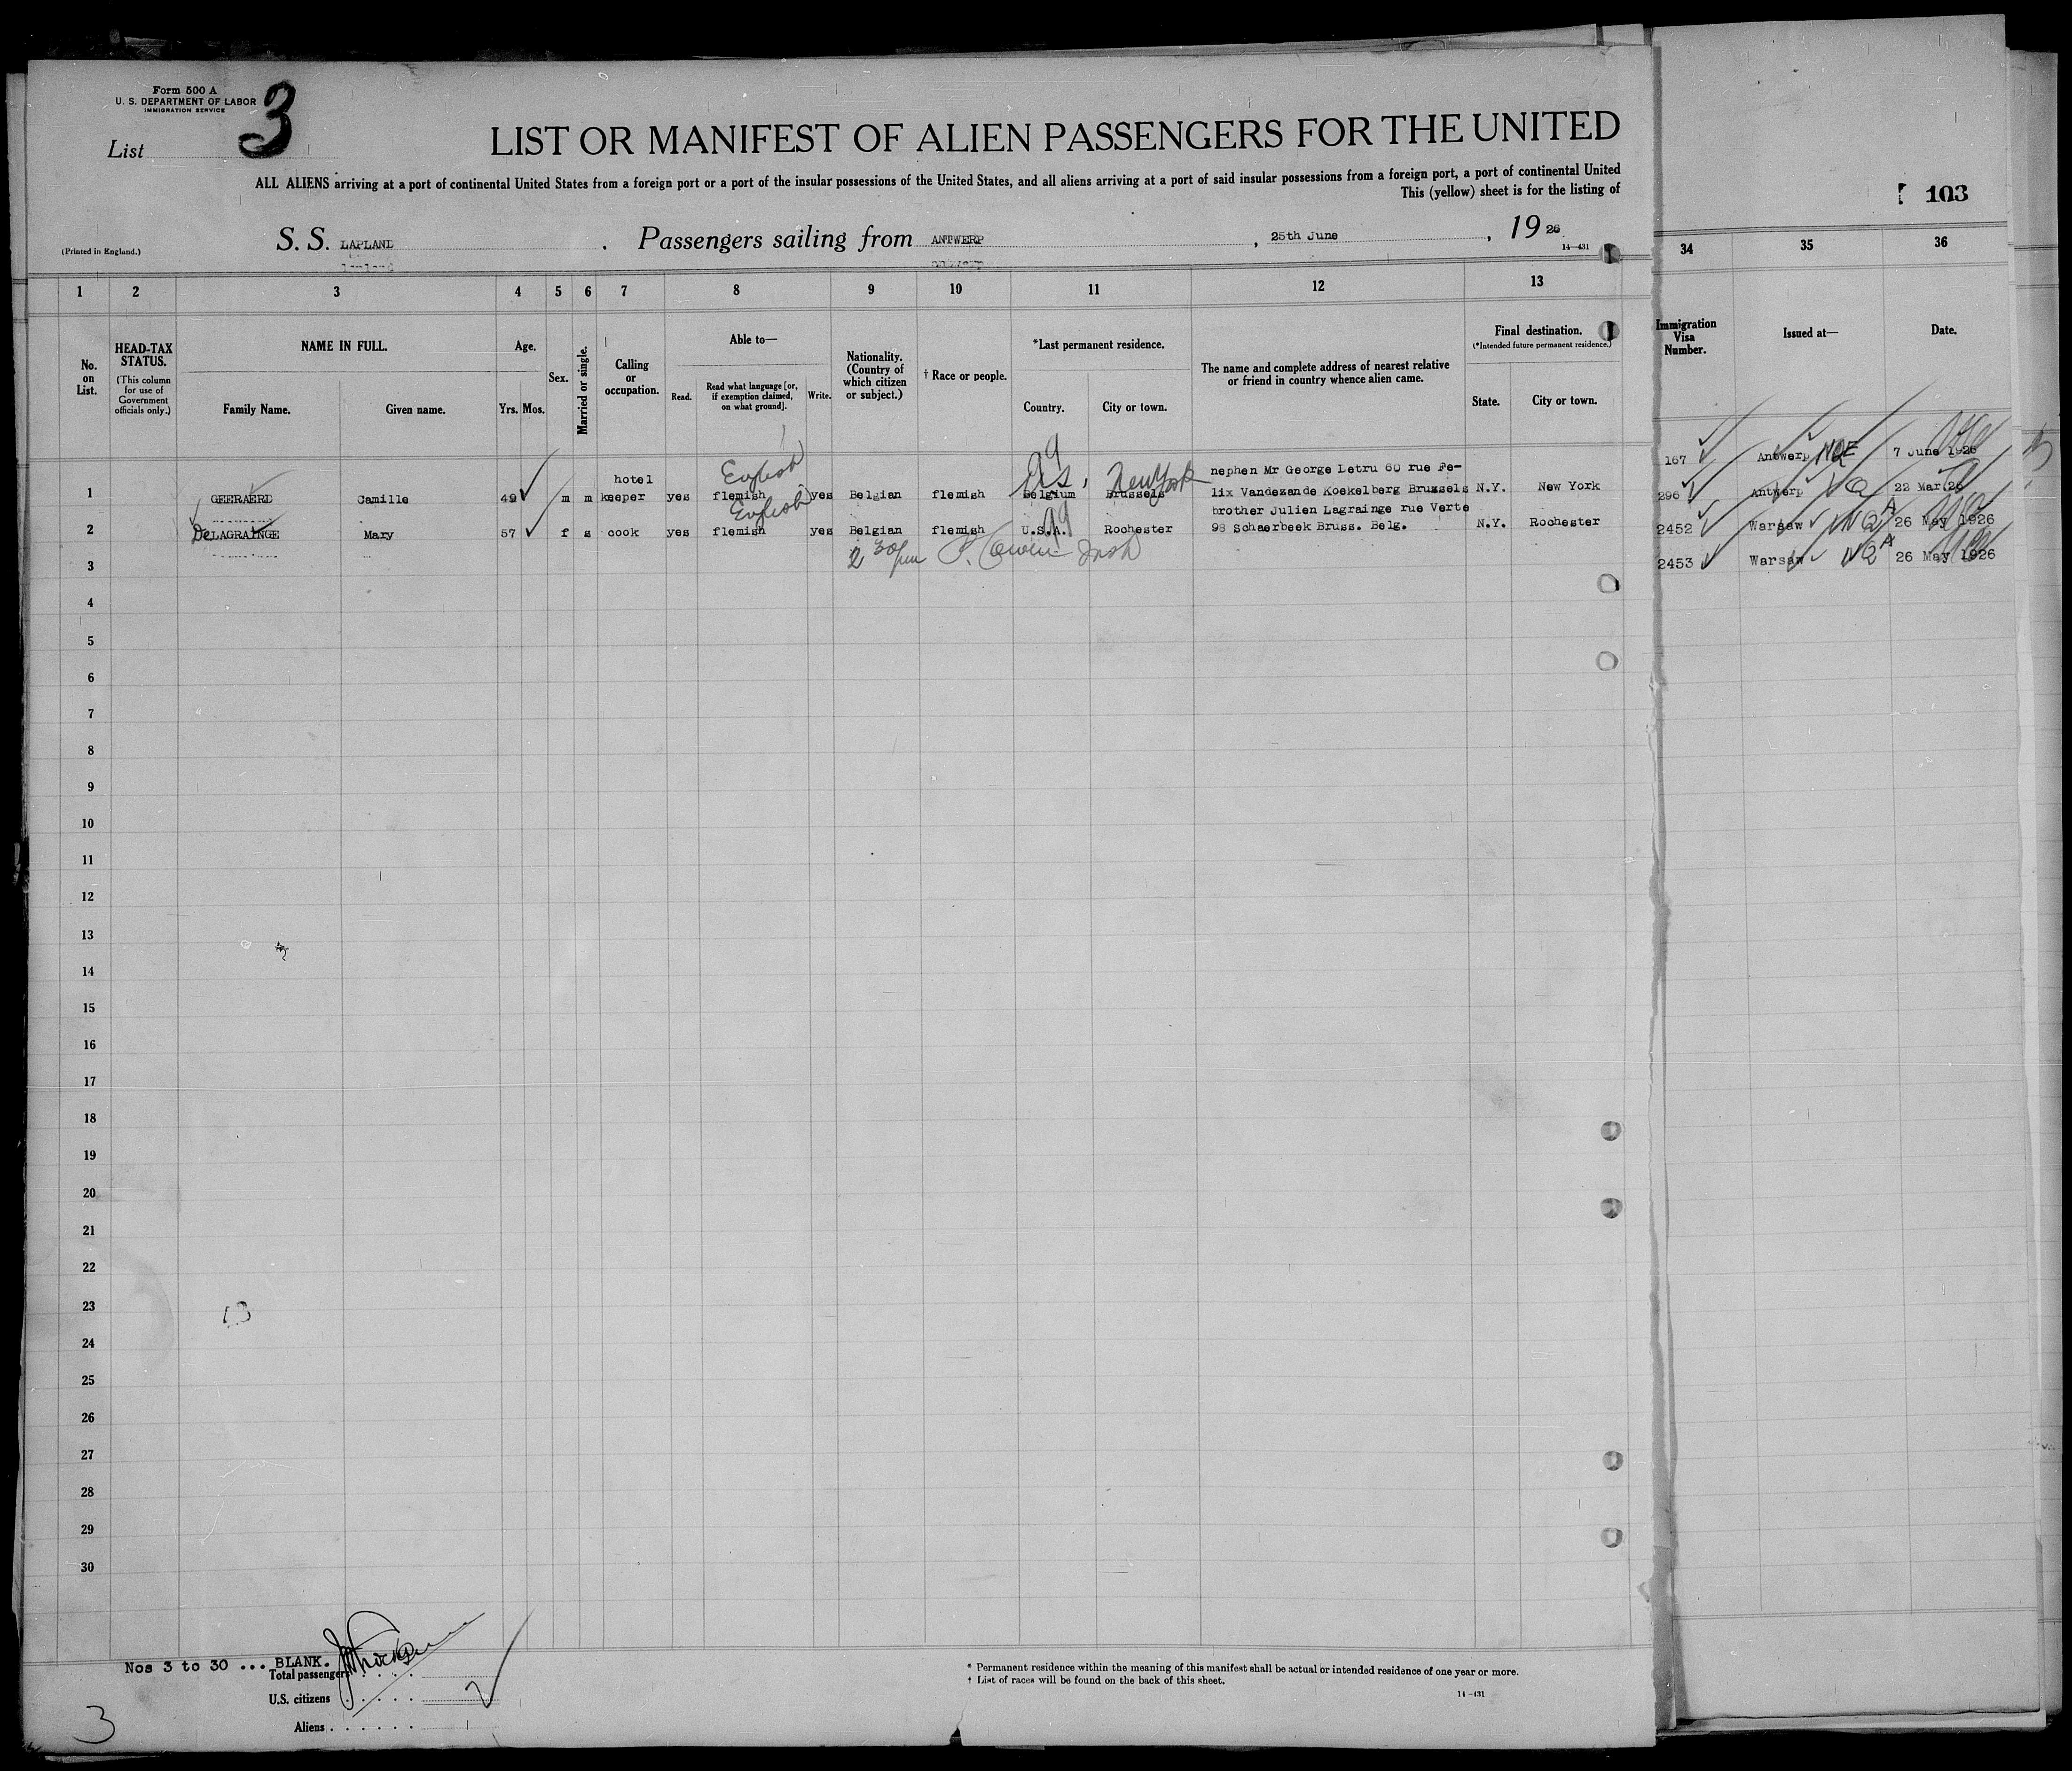 Form 500 A
U. S. DEPARTMENT OF LABOR
IMMIGRATION SERVICE
List 3
LIST OR MANIFEST OF ALIEN PASSENGERS FOR THE UNITED
ALL ALIENS arriving at a port of continental United States from a foreign port or a port of the insular possessions of the United States, and all aliens arriving at a port of said insular possessions from a foreign port, a port of continental United
This (yellow) sheet is for the listing of
103
(Printed in England.)
S. S. LAPLAND . Passengers sailing from ANTWERP , 25th June , 19 26
14—431
1 2 3 4 5 6 7 8 9 10 11 12 13 34 35 36
No. on List.
HEAD-TAX STATUS.
(This column for use of Government officials only.)
NAME IN FULL.
Family Name. Given name.
Age.
Yrs. Mos.
Sex.
Married or single.
Calling or occupation.
Able to—
Read. Read what language [or, if exemption claimed, on what ground]. Write.
Nationality. (Country of which citizen or subject.)
† Race or people.
*Last permanent residence.
Country. City or town.
The name and complete address of nearest relative or friend in country whence alien came.
Final destination.
(*Intended future permanent residence.)
State. City or town.
Immigration Visa Number.
Issued at—
Date.
167 Antwerp NQE 7 June 1926
hotel English U.S. New York nephen Mr George Letru 60 rue Fe-
1 GEERAERD Camille 49 m m keeper yes flemish yes Belgian flemish Belgium Brussels lix Vandezande Koekelberg Brussels N.Y. New York
296 Antwerp Q 22 Mar 26
English brother Julien Lagrainge rue Verte
2 DeLAGRAINGE Mary 57 f s cook yes flemish yes Belgian flemish U.S.A. Rochester 98 Schaerbeek Bruss. Belg. N.Y. Rochester
2452 Warsaw NQA 26 May 1926
2 30 pm
3
2453 Warsaw NQA 26 May 1926
4
5
6
7
8
9
10
11
12
13
14
15
16
17
18
19
20
21
22
23
24
25
26
27
28
29
30
Nos 3 to 30 ... BLANK.
Total passengers . . . .
U.S. citizens . . . . .
Aliens . . . . . .
3
* Permanent residence within the meaning of this manifest shall be actual or intended residence of one year or more.
† List of races will be found on the back of this sheet.
14—431